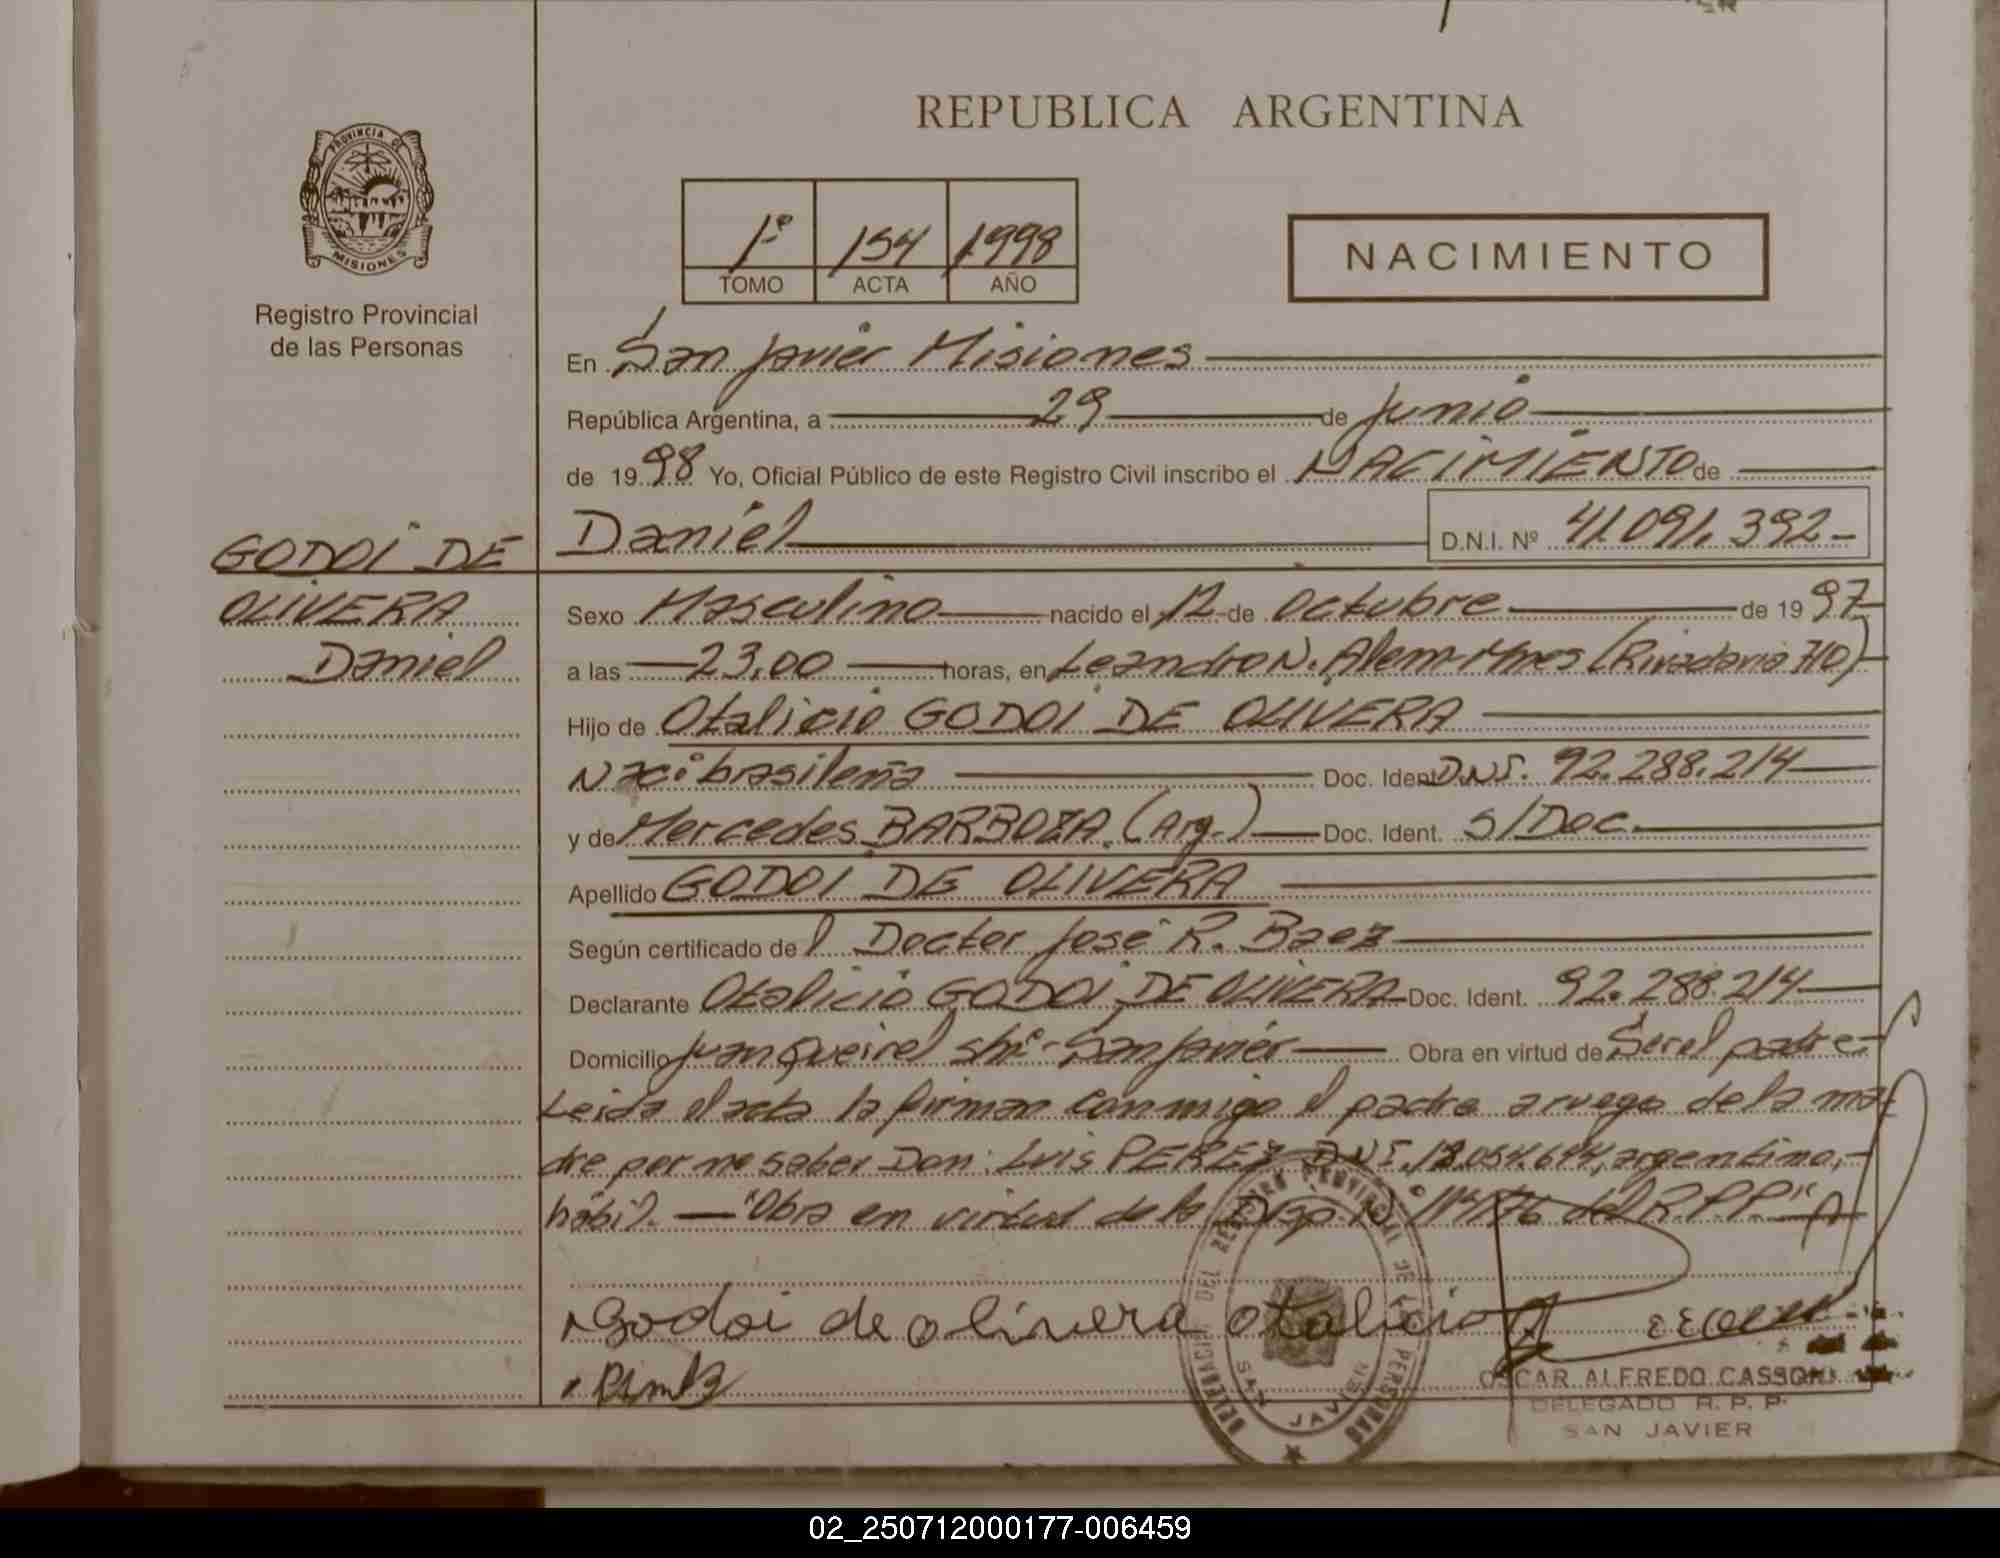 REPUBLICA ARGENTINA
PROVINCIA DE
MISIONES
Registro Provincial
de las Personas
1º 154 1998
TOMO ACTA AÑO
NACIMIENTO
En San Javier Misiones
República Argentina, a 29 de Junio
de 1998 Yo, Oficial Público de este Registro Civil inscribo el NACIMIENTO de
GODOI DE
OLIVERA
Daniel
Daniel D.N.I. Nº 41.091.392-
Sexo Masculino nacido el 12 de Octubre de 1997
a las 23,00 horas, en Leandro N. Alem-Mnes (Rivadavia 710)
Hijo de Otalicio GODOI DE OLIVERA
Nac: brasileña Doc. Ident. D.N.I. 92.288.214
y de Mercedes BARBOZA. (Arg.) Doc. Ident. S/Doc.
Apellido GODOI DE OLIVERA
Según certificado del Doctor José R. Baez
Declarante Otalicio GODOI DE OLIVERA Doc. Ident. 92.288.214
Domicilio Juan Queirel s/nº - San Javier Obra en virtud de Ser el padre-
Leida el acta la firman conmigo el padre a ruego de la ma-
dre por no saber Don: Luis PEREZ D.N.I. argentino,-
hábil. — "Obra en virtud de la Disp. Nº 114/76 del R.P.P"
Godoi de olivera otalicio
DELEGACION DEL REGISTRO PROVINCIAL DE LAS PERSONAS
SAN JAVIER
OSCAR ALFREDO CASSONI
DELEGADO R. P. P.
SAN JAVIER
02_250712000177-006459